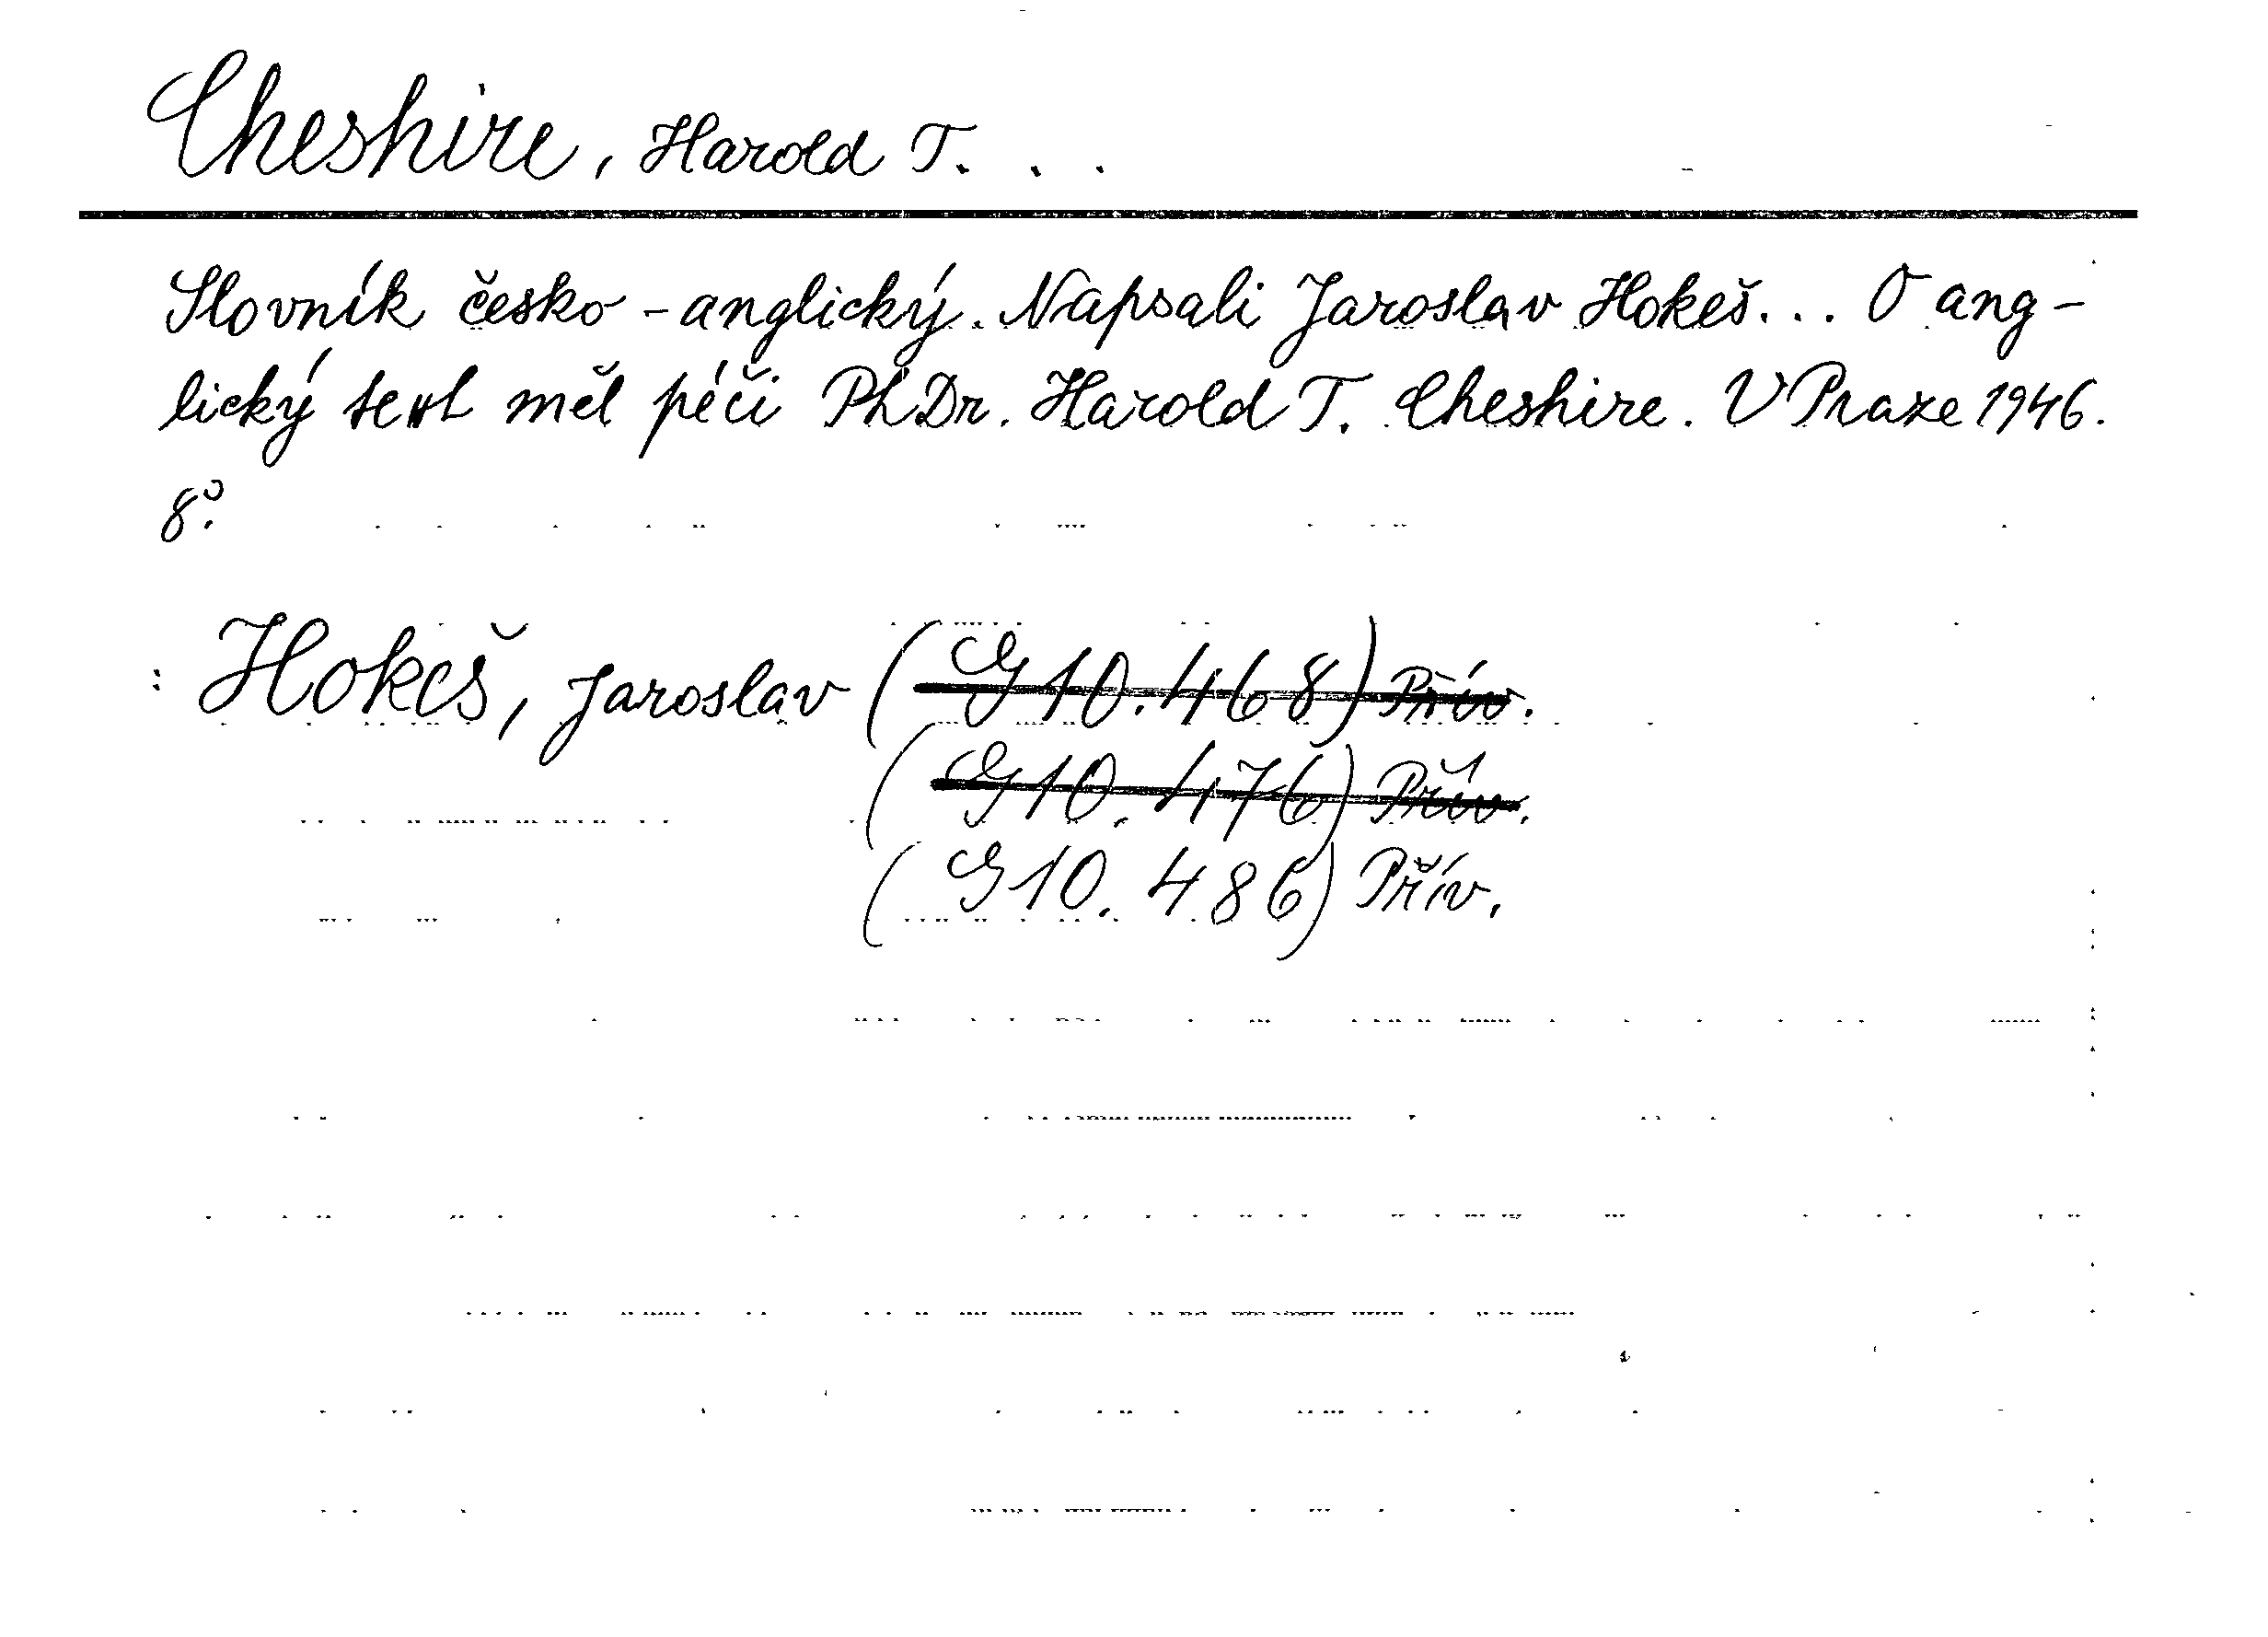 Cheshire, Harold T. . .
Slovník česko-anglický. Napsali Jaroslav Hokeš... O ang-
lický text měl péči PhDr. Harold T. Cheshire. V Praze 1946.
8°.
: Hokeš, Jaroslav (G 10.468) Přív.
(G 10.476) Přív.
(G 10.486) Přív.